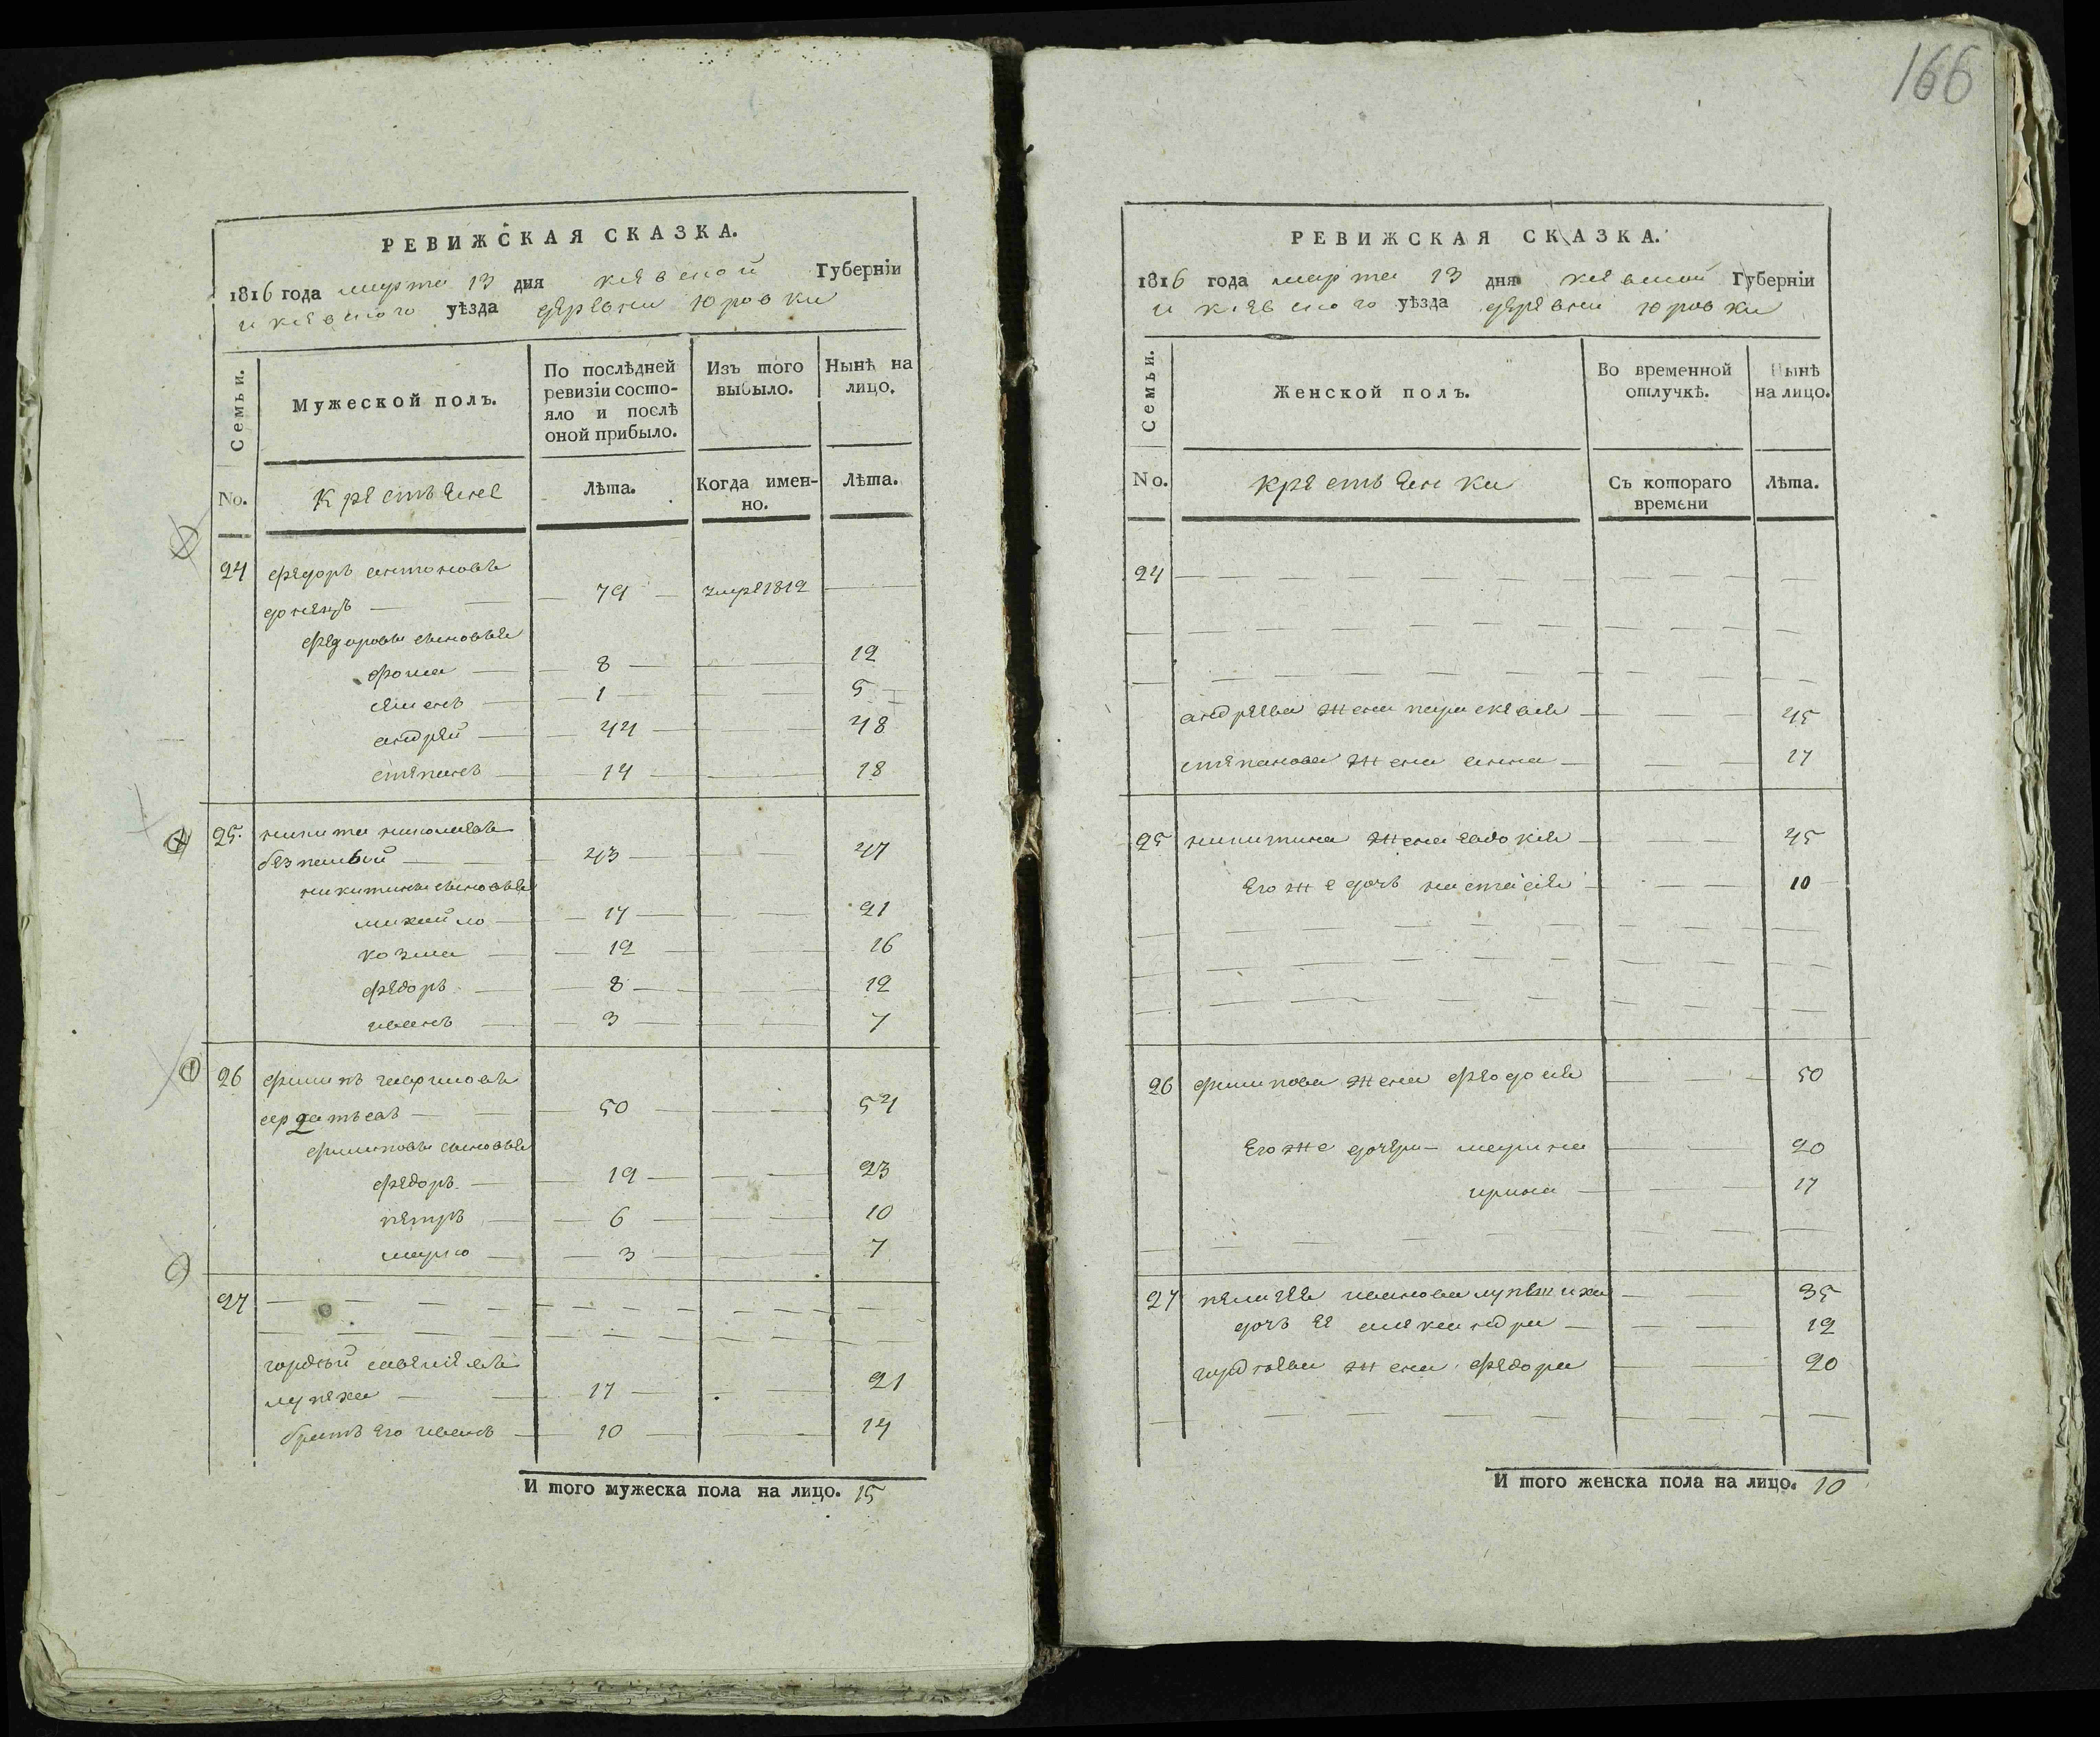 166
РЕВИЖСКАЯ СКАЗКА.
1816 года марта 13 дня киевской Губерніи
и киевского уѣзда деревни Юровки
Семьи.
Мужеской полъ.
По послѣдней ревизіи состо-
яло и послѣ
оной прибыло.
Изъ того
выбыло.
Нынѣ на
лицо.
No.
крестьяне
Лѣта.
Когда имен-
но.
Лѣта.
24 федоръ антоновъ
донецъ — 79 — умре 1812 —
федоровы сыновья
фома — 8 — 12
семенъ — 1 — 5
андрей — 44 — 48
степанъ — 14 — 18
25. никита николаевъ
безпалый — 43 — 47
никитины сыновья
михайло — 17 — 21
козма — 12 — 16
федоръ — 8 — 12
иванъ — 3 — 7
26 филипъ
50 — 54
филиповы сыновья
федоръ — 19 — 23
петръ — 6 — 10
марко — 3 — 7
27
гордѣй савелиевъ
лупеха — 17 — 21
братъ его иванъ — 10 — 14
И того мужеска пола на лицо. 15
РЕВИЖСКАЯ СКАЗКА.
1816 года марта 13 дня киевской Губерніи
и киевского уѣзда деревни Юровки
Семьи.
Женской полъ.
Во временной
отлучкѣ.
Нынѣ
на лицо.
No.
крестьянки
Съ котораго
времени
Лѣта.
24
андреева жена параскевия — 45
степанова жена анна — 17
25 никитина жена евдокия — 45
его же дочь настасия — 10
26 филипова жена феодосия — 50
его же дочери — марина 20
ирина — 17
27 пелагея иванова лупѣжиха — 35
дочь ее александра — 12
гордѣева жена федора 20
И того женска пола на лицо. 10